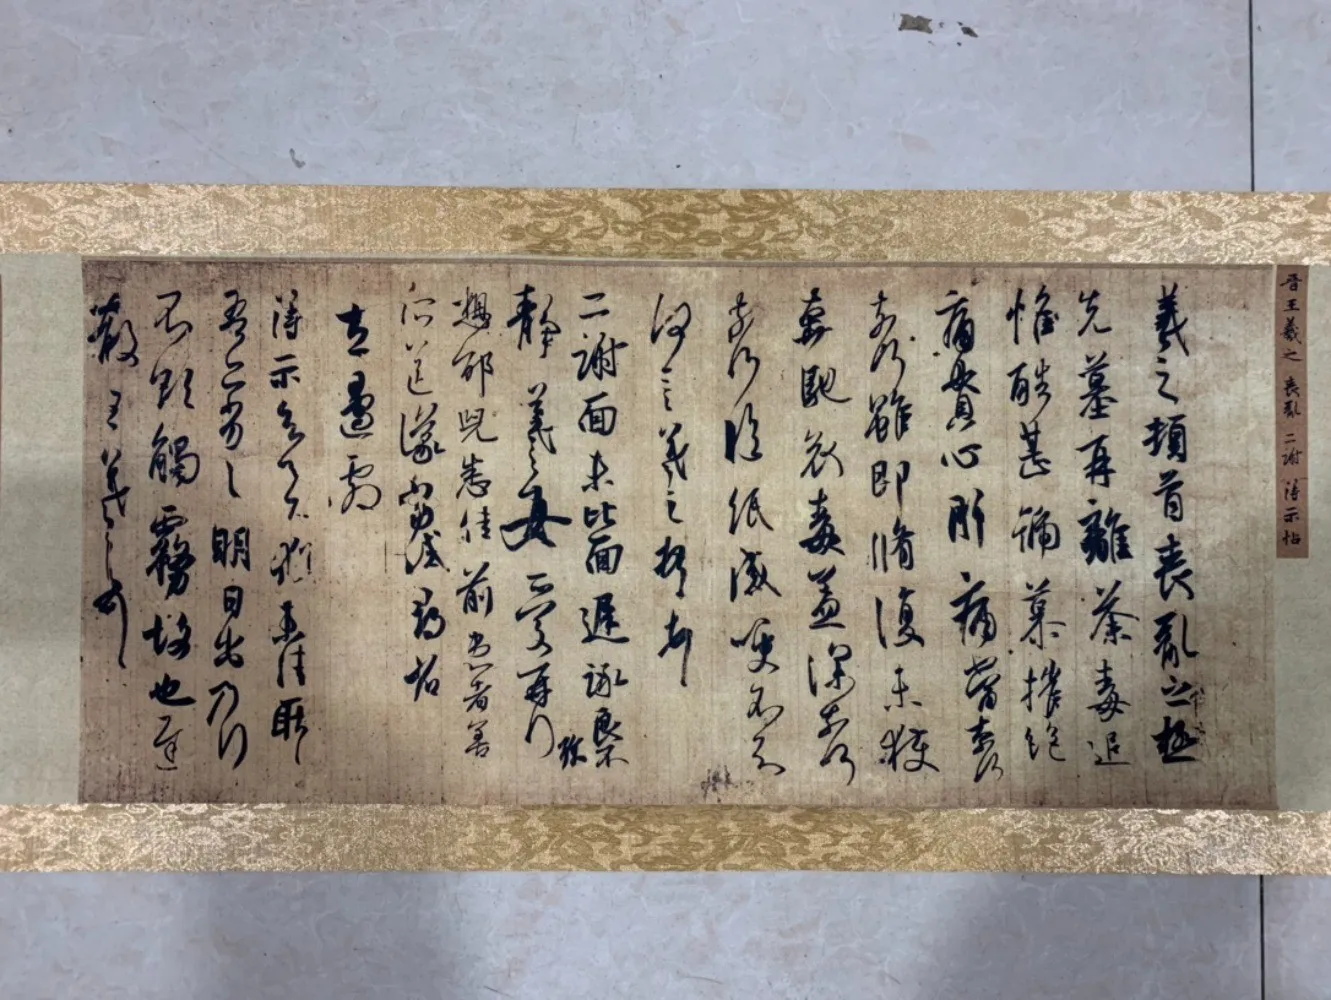 晋王羲之 喪亂 二謝 得示帖
羲之頓首喪亂之極
先墓再離荼毒追
惟酷甚號慕摧絕
痛貫心肝痛當奈何
奈何雖即脩復未獲
奔馳哀毒益深奈何
奈何臨紙感哽不知
何言羲之頓首頓首
二謝面未比面遲詠良不
珍
靜羲之女愛再拜
想邵兒悉佳前患者善
所送議當試尋省
左邊劇
得示知足下猶未佳耿耿
吾亦劣劣明日出乃行
不欲觸霧故也遲
散王羲之頓首